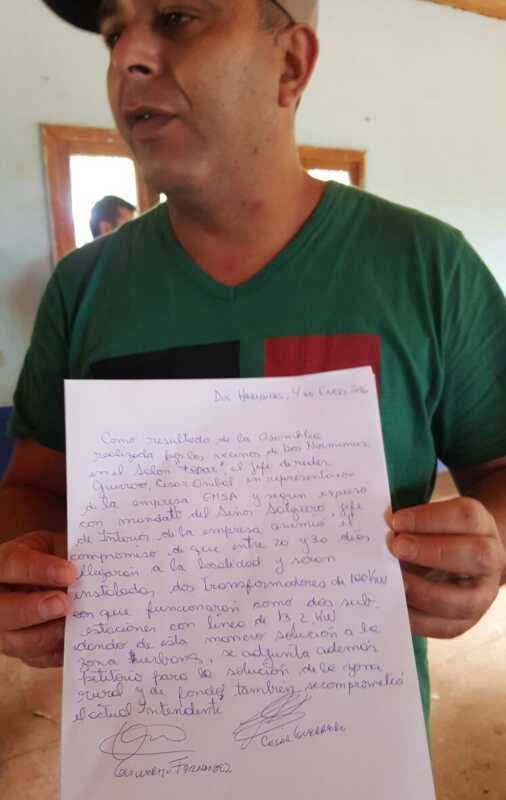 Dos Hermanas, 4 de Enero 2016
Como resultado de la Asamblea
realizada por los vecinos de Dos Hermanas
en el Salon "tepar", el jefe de redes
Guerrero, Cesar Anibal en representacion
de la empresa EMSA y segun expreso
con mandato del Señor Salguero, jefe
de Interior de la empresa asumió el
compromiso de que entre 20 y 30 dias
llegaran a la localidad y seran
instalados dos transformadores de 100 KW
con que funcionaran como dos sub
estaciones con linea de 13,2 KW
dando de esta manera solución a la
zona hurbana, se adjunta además
petitorio para la solución de la zona
rural y de fondo, tambien se comprometió
el actual Intendente
Fernandez
Cesar Guerrero